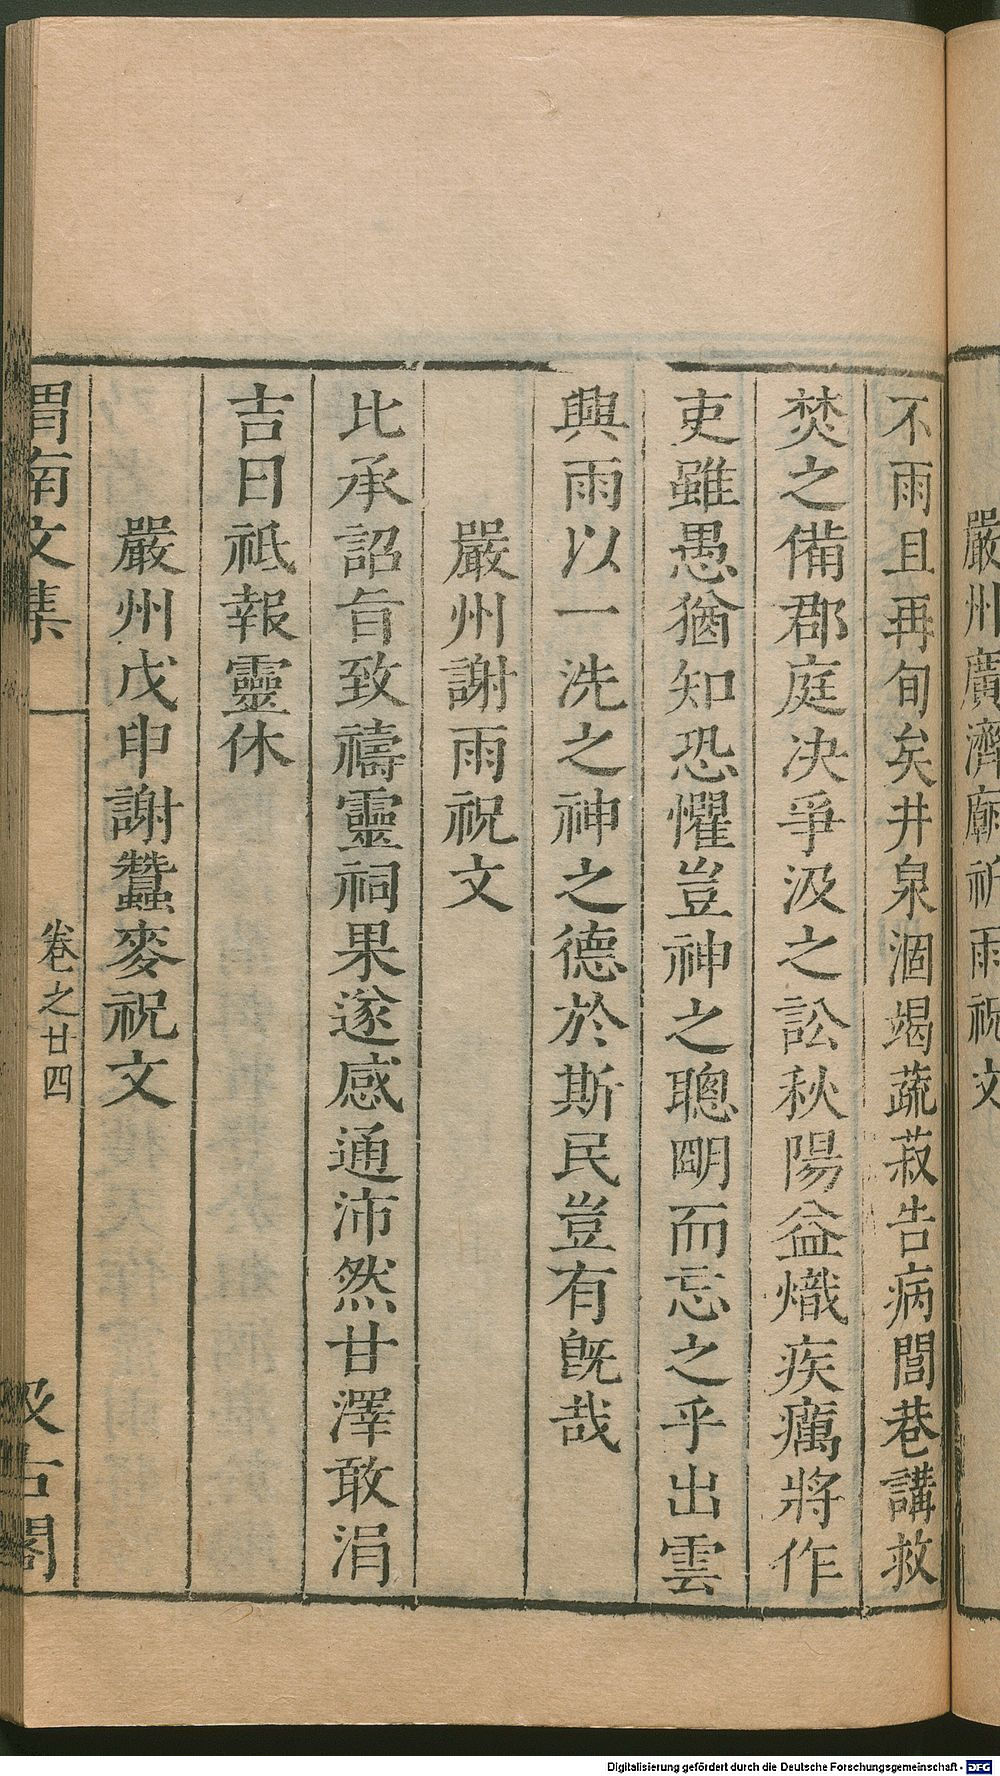 嚴州廣濟廟祈雨祝文
不雨且再旬矣井泉涸竭蔬菽告病閭巷講救
焚之備郡庭决爭汲之訟秋陽益熾疾癘將作
吏雖愚猶知恐懼豈神之聰明而忘之乎出雲
興雨以一洗之神之德於斯民豈有旣哉
嚴州謝雨祝文
比承詔旨致禱靈祠果遂感通沛然甘澤敢涓
吉日祗報靈休
嚴州戊申謝蠶麥祝文
渭南文集
卷之廿四
汲古閣
Digitalisierung gefördert durch die Deutsche Forschungsgemeinschaft - DFG